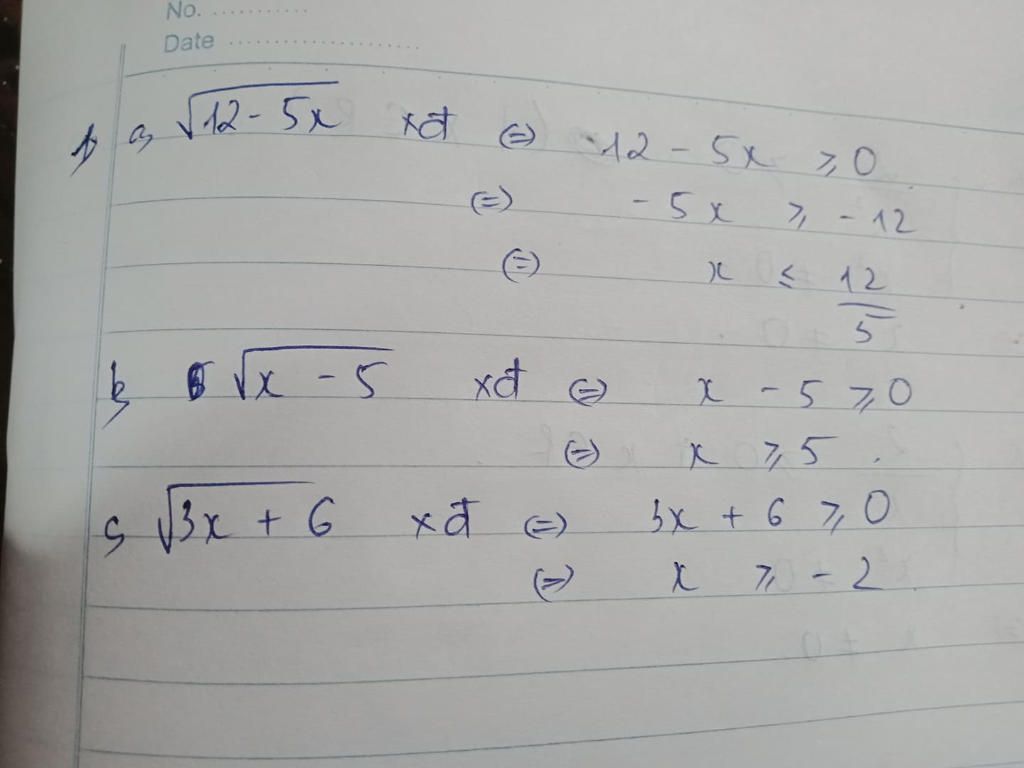 No. ............
Date ........................
1, a, √12 - 5x xđ ⇔ 12 - 5x ≥ 0
⇔ - 5x ≥ - 12
⇔ x ≤ 12/5
b, √x - 5 xđ ⇔ x - 5 ≥ 0
⇔ x ≥ 5 .
c, √3x + 6 xđ ⇔ 3x + 6 ≥ 0
⇔ x ≥ - 2